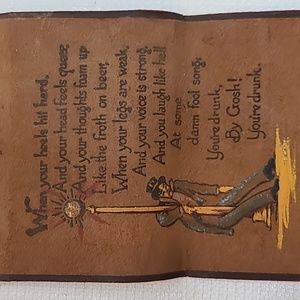 When your heels hit hard,
And your head feels queer,
And your thoughts foam up
Like the froth on beer,
When your legs are weak,
And your voice is strong,
And you laugh like hell
At some
damn fool song;
You're drunk,
By Gosh!
You're drunk.